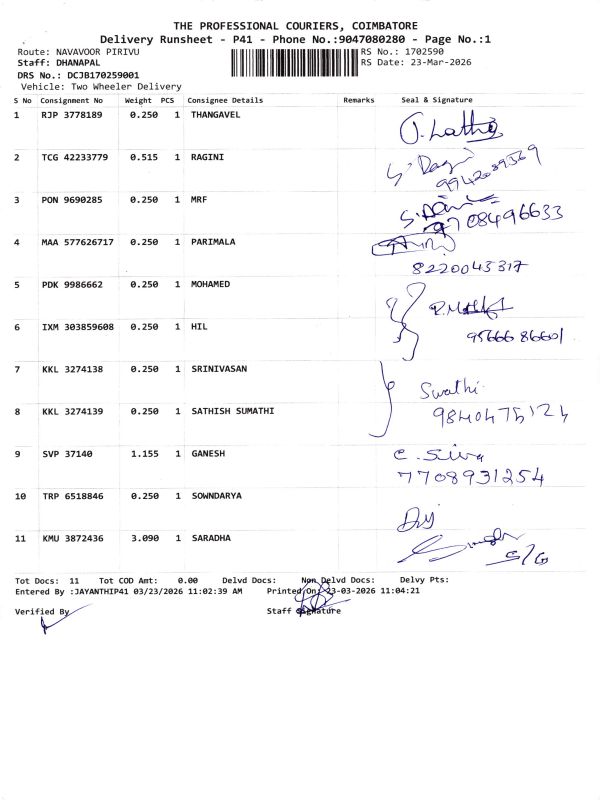 THE PROFESSIONAL COURIERS, COIMBATORE
Delivery Runsheet - P41 - Phone No.:9047080280 - Page No.:1
Route: NAVAVOOR PIRIVU RS No.: 1702590
Staff: DHANAPAL RS Date: 23-Mar-2026
DRS No.: DCJB170259001
Vehicle: Two Wheeler Delivery
S No Consignment No Weight PCS Consignee Details Remarks Seal & Signature
1 RJP 3778189 0.250 1 THANGAVEL
2 TCG 42233779 0.515 1 RAGINI
9942089369
3 PON 9690285 0.250 1 MRF
9708496633
4 MAA 577626717 0.250 1 PARIMALA
8220043317
5 PDK 9986662 0.250 1 MOHAMED
6 IXM 303859608 0.250 1 HIL
9566686601
7 KKL 3274138 0.250 1 SRINIVASAN
Swathi
8 KKL 3274139 0.250 1 SATHISH SUMATHI
9840475124
9 SVP 37140 1.155 1 GANESH C. Siva
7708931254
10 TRP 6518846 0.250 1 SOWNDARYA
11 KMU 3872436 3.090 1 SARADHA
S/G
Tot Docs: 11 Tot COD Amt: 0.00 Delvd Docs: Non Delvd Docs: Delvy Pts:
Entered By :JAYANTHIP41 03/23/2026 11:02:39 AM Printed On: 23-03-2026 11:04:21
Verified By Staff Signature